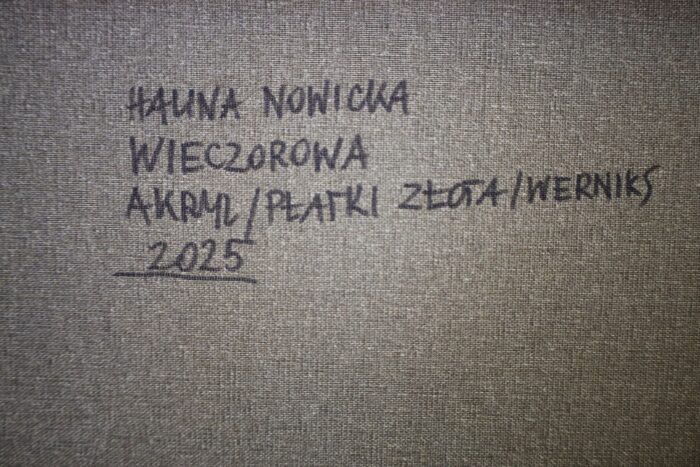 HALINA NOWICKA
WIECZOROWA
AKRYL/PŁATKI ZŁOTA/WERNIKS
2025